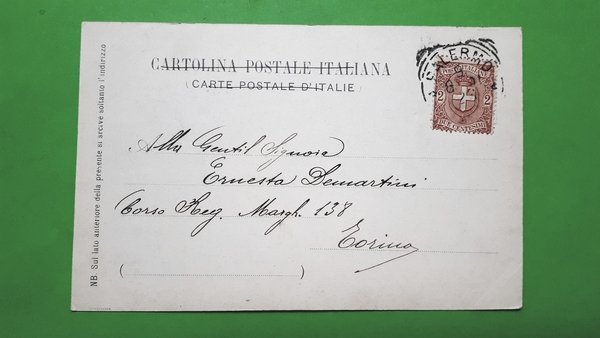 CARTOLINA POSTALE ITALIANA
(CARTE POSTALE D'ITALIE)
PALERMO
POSTE ITALIANE
2 2
DUE CENTESIMI
Alla Gentil Signora
Ernesta Demartini
Corso Reg. Margh. 138
Torino
NB. Sul lato anteriore della presente si scrive soltanto l'indirizzo